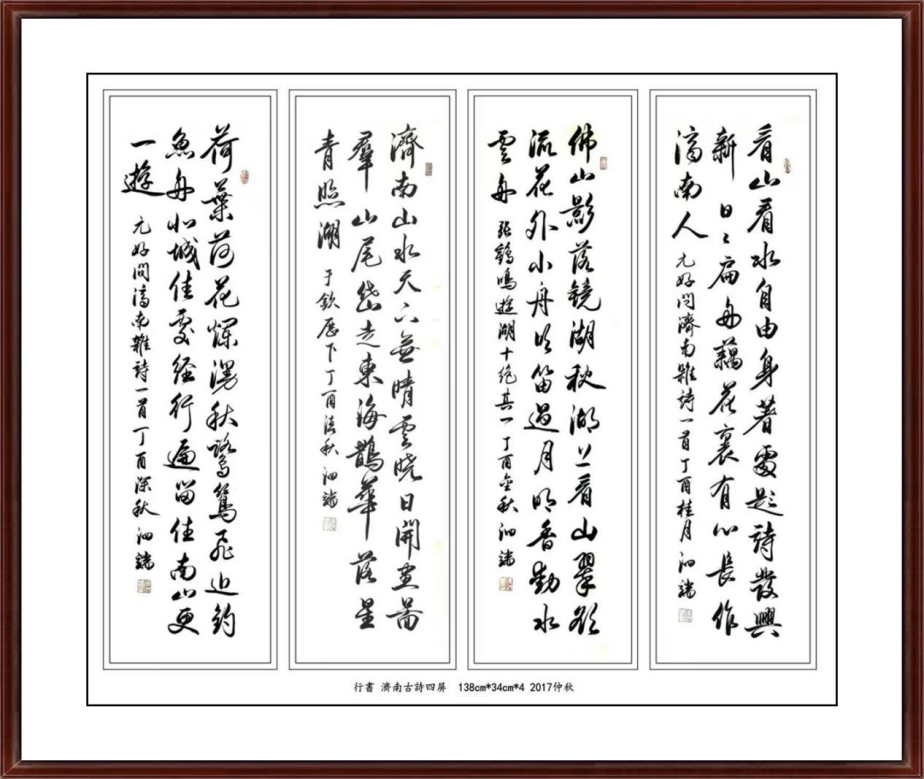 看山看水自由身著處題詩發興
新日々扁舟藕花裏有心長作
濟南人 元好問濟南雜詩一首丁酉桂月 泗瑞
佛山影落鏡湖秋湖上看山翠欲
流花外小舟吹笛過月明香動水
雲舟 張鶴鳴遊湖十絕其一 丁酉金秋 泗瑞
濟南山水天下無晴雲曉日開畫圖
羣山尾岱走東海鵲華落星
青照湖 于欽歷下丁酉深秋 泗瑞
荷葉荷花爛漫秋鷺鷥飛近釣
魚舟北城佳處經行遍留住南山更
一遊 元好問濟南雜詩一首丁酉深秋 泗瑞
行書 濟南古詩四屏 138cm*34cm*4 2017仲秋